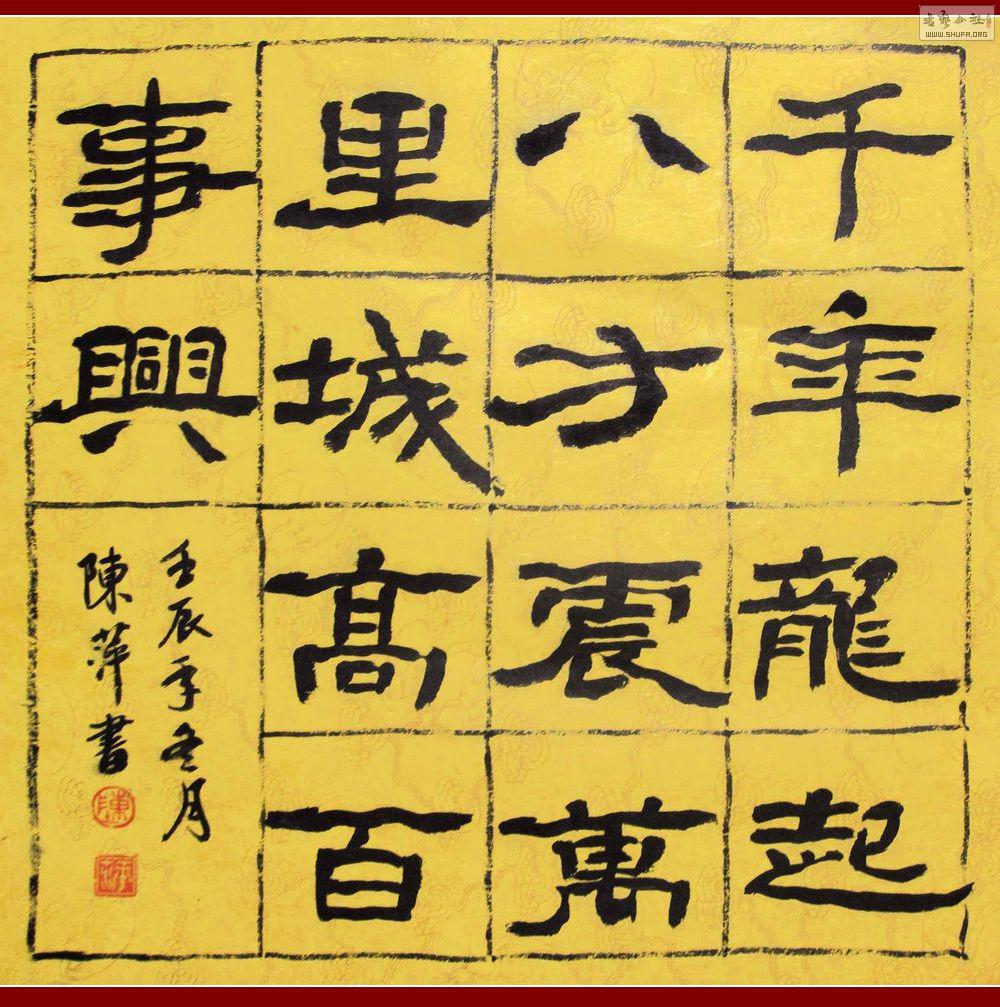 千年龍起
八方震萬
里城高百
事興
壬辰年冬月
陳萍書
陳
書艺公社
WWW.SHUFA.ORG